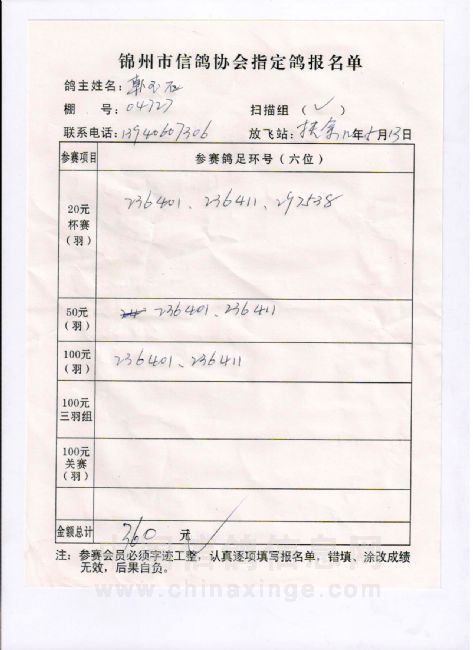 锦州市信鸽协会指定鸽报名单
鸽主姓名：郭玉石
棚 号：04727 扫描组（✓）
联系电话：13940607306 放飞站：扶余 12年5月13日
参赛项目 参赛鸽足环号（六位）
20元
杯赛
（羽）
236401、236411、292538
50元
（羽）
236401、236411
100元
（羽）
236401、236411
100元
三羽组
100元
关赛
（羽）
金额总计 360 元
注：参赛会员必须字迹工整，认真逐项填写报名单，错填、涂改成绩
无效，后果自负。
中国信鸽信息网
www.chinaxinge.com